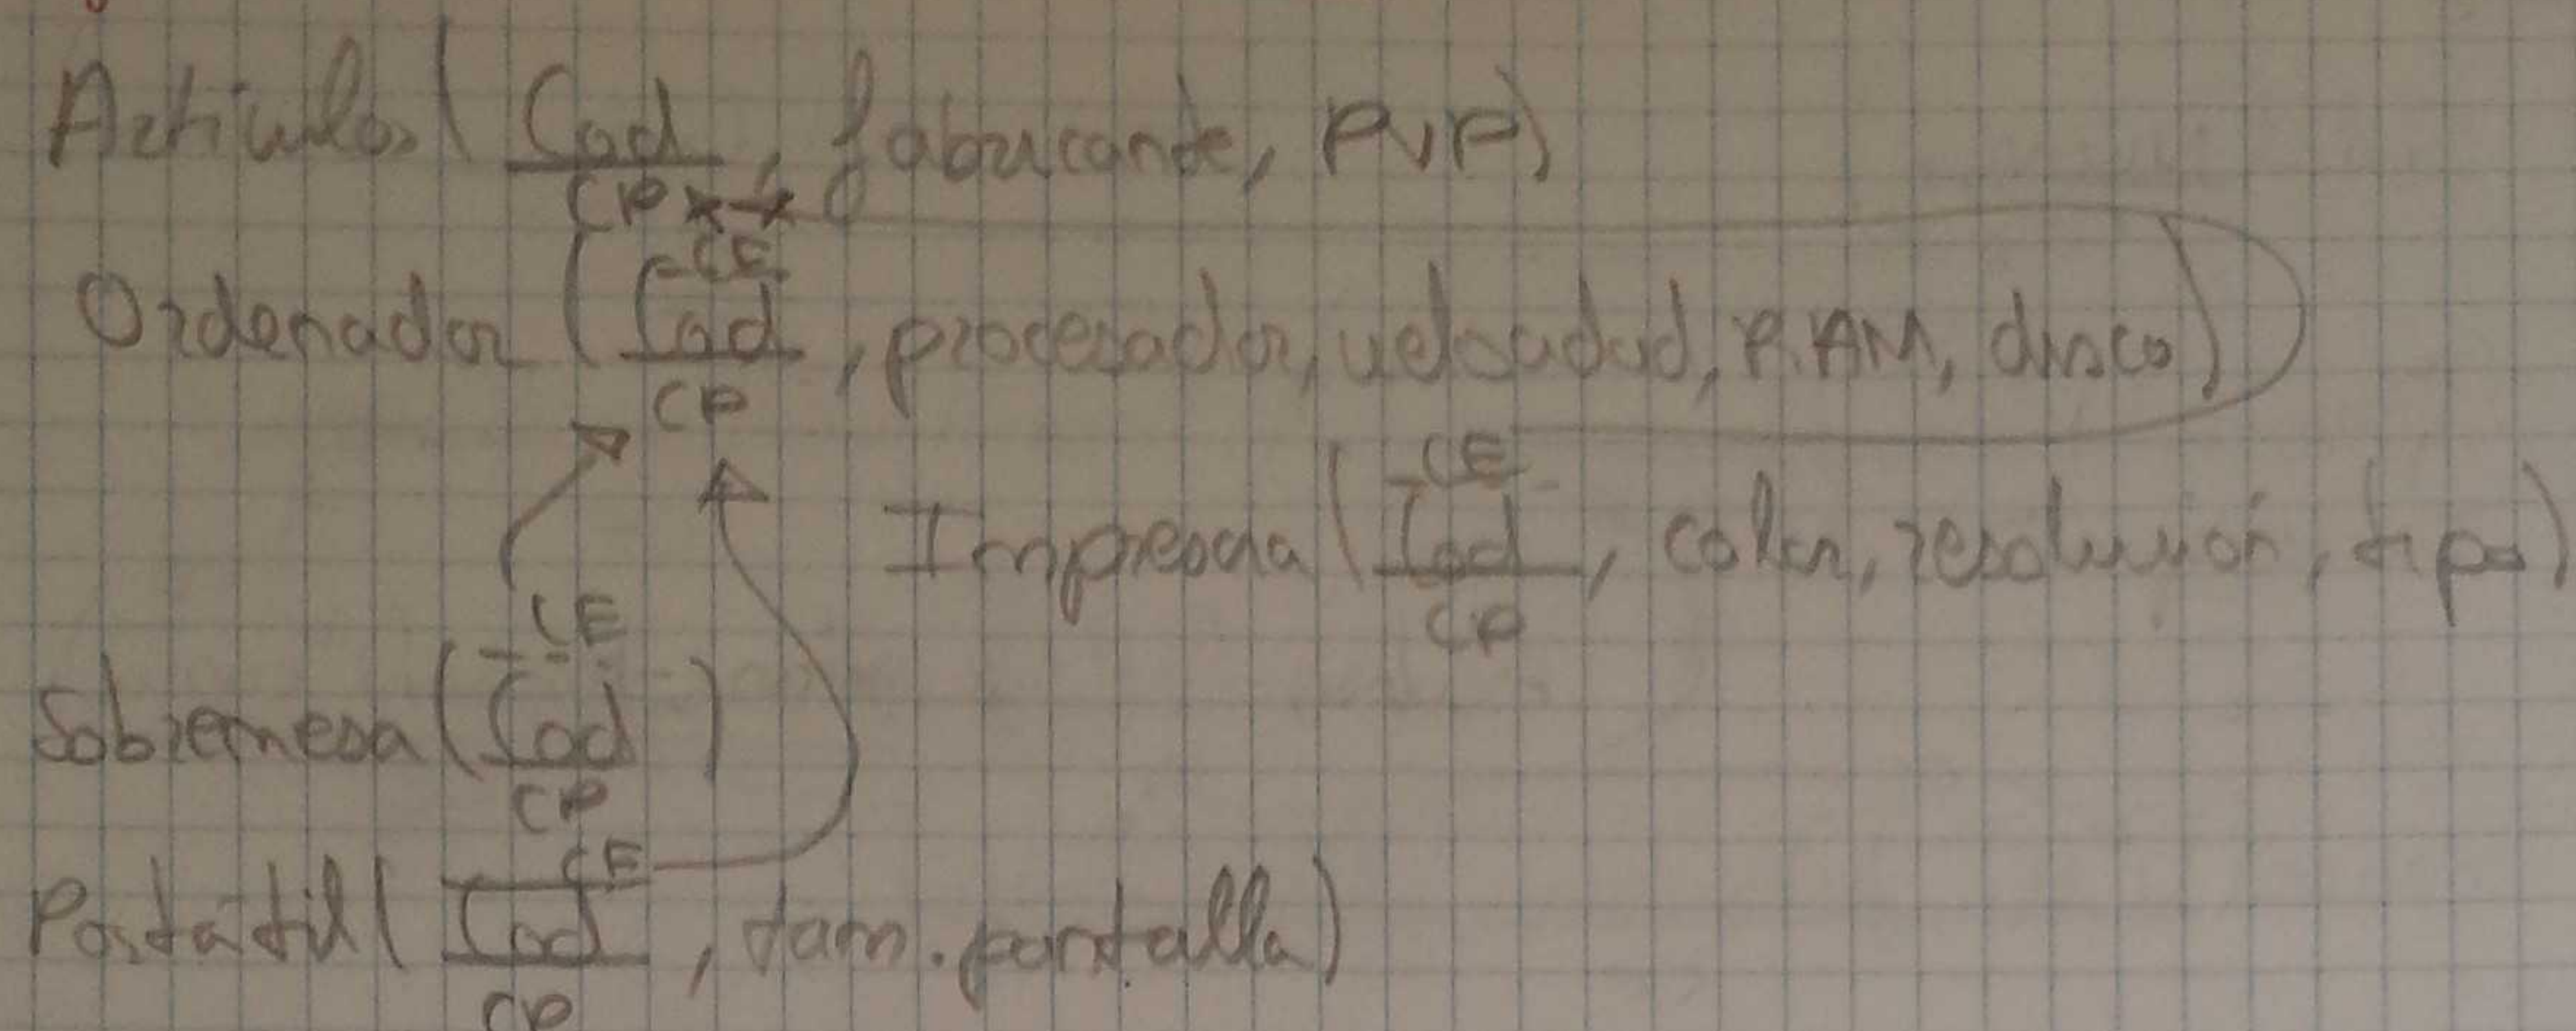 Artículos ( Cod, fabricante, PVP)
CP
CE
Ordenador ( Cod, procesador, velocidad, RAM, disco)
CP
CE
Impresora ( Cod, color, resolución, tipo)
CP
CE
Sobremesa ( Cod )
CP
CE
Portátil ( Cod, tam. pantalla)
CP